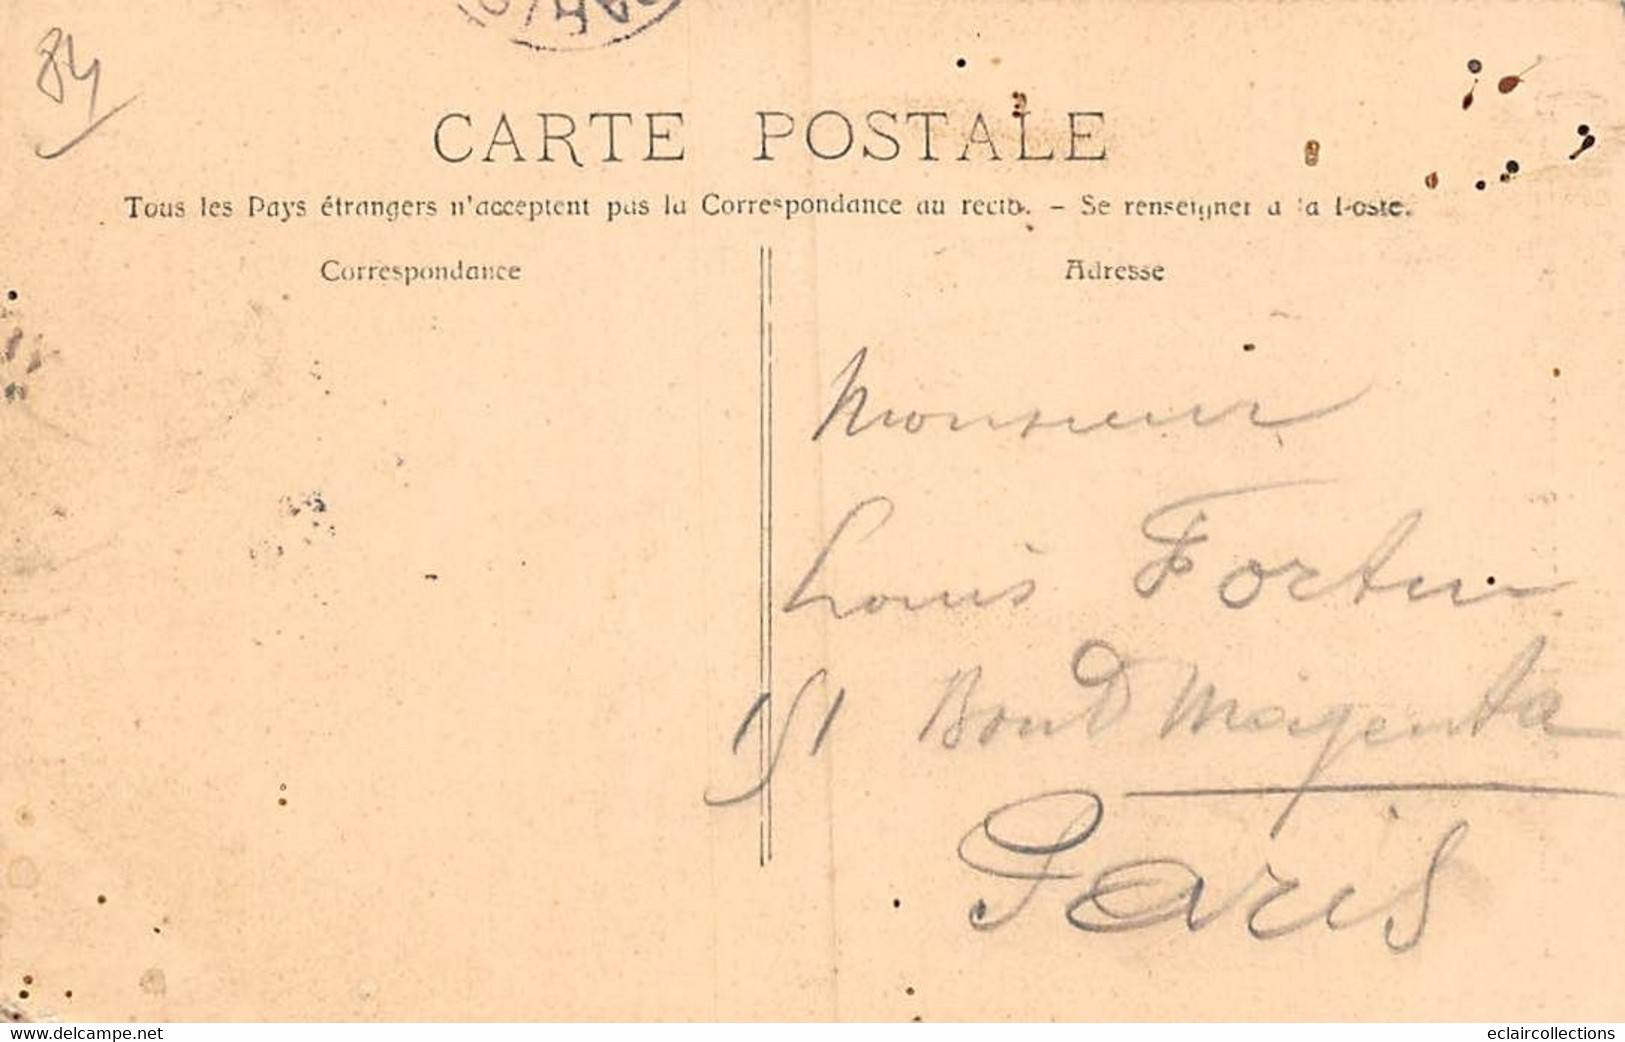 84
CARTE POSTALE
Tous les Pays étrangers n'acceptent pas la Correspondance au recto. - Se renseigner à la Poste.
Correspondance
Adresse
Monsieur
Louis Fortin
151 Boul D Magenta
Paris
www.delcampe.net
eclaircollections